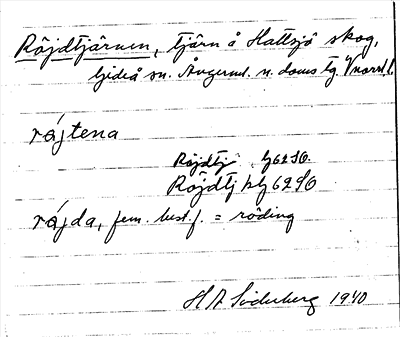 Röjdtjärnen, tjärn å Hattsjö skog,
Gideå sn. Ångerml. n. doms tg. V/norrl.l.
råjtena
Röjdtj lj62SO.
Röjdtj blj62SO
råjda, fem. best. f. = röding
H A Söderberg 1940